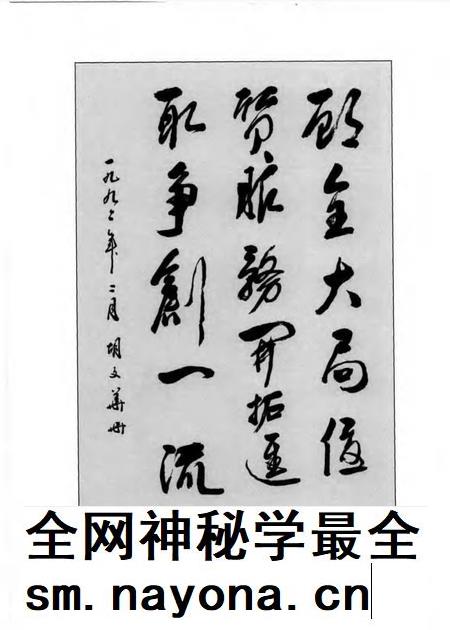 顾全大局優
質服務開拓進
取争創一流
一九九二年二月 胡文
全网神秘学最全
sm.nayona.cn